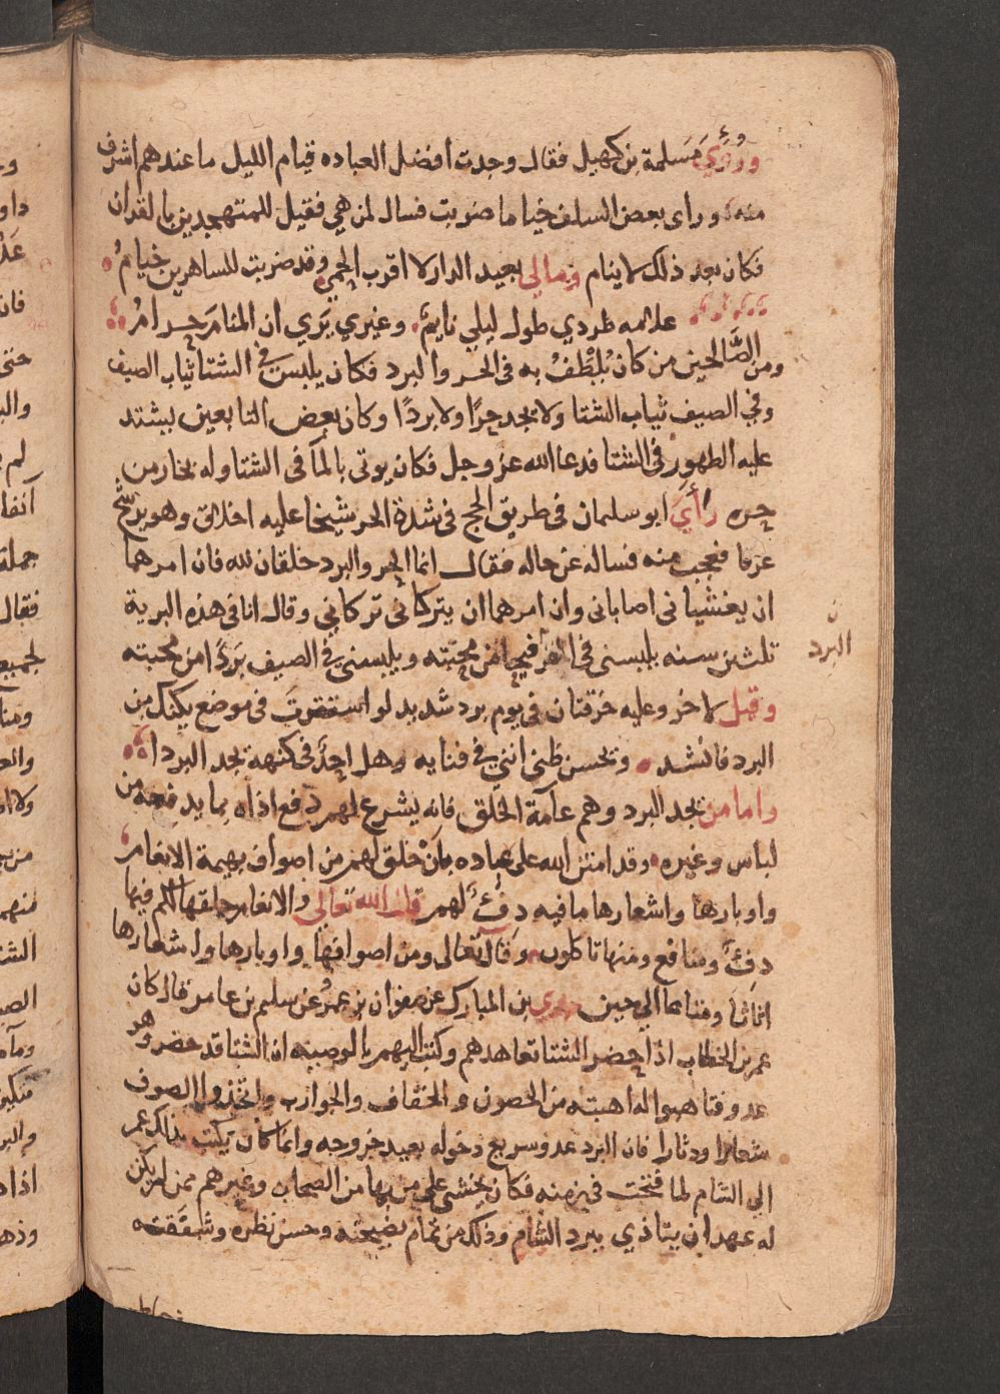 ورُؤي مَسلمة بن كهيل فقال وجدت افضل العباده قيام الليل ما عندهم اشرف
منه وراى بعض السلف خياما ضربت فسال لمن هي فقيل للمتهجدين بالقران
فكان بعد ذلك لا ينام ومالي بعيد الدار لا اقرب الحمى وقد ضربت للساهرين خيامُ
علامه طردي طول ليلي نايمٌ وغيري يَرَي ان المنامَ حرامُ
ومن الصَّالحين من كان يُلْطَفُ به في الحر والبرد فكان يلبس في الشتا ثياب الصيف
وفي الصيف ثياب الشتا ولا يجد حرًا ولا بردًا وكان بعض التابعين يشتد
عليه الطهور في الشتا فدعا الله عز وجل فكان يوتى بالمآ في الشتا وله بخار من
حره رأي ابو سلمان في طريق الحج في شدة الحر شيخا عليه اخلاق وهو يرشح
عرقا فعجب منه فساله عن حاله فقال انما الحر والبرد خلقان لله فان امرهما
ان يغشياني اصاباني وان امرهما ان يتركاني تركاني وقال انا في هذه البرية
ثلثين سنه يلبسني في البرد فيحا من محبته ويلبسني في الصيف بَردًا من محبته
البرد
وقيل لاخر وعليه خرقتان في يوم برد شديد لو استترتَ في موضع يكنك من
البرد فانشد ويحسن ظني انني في فنايه وهل احدٌ في كنهه يجد البردا
واما من يجد البرد وهم عآمة الخلق فانه يشرع لهم دفع اذاه بما يدفعه من
لباس وغيره وقد امتن الله على عباده بأن خلق لهم من اصواف بهيمة الانعام
واوبارها واشعارها ما فيه دِفْءٌ لهم قال الله تعالى والانعام خلقها لكم فيها
دفءٌ ومنافع ومنها تاكلون وقال تعالى ومن اصوافها واوبارها واشعارها
اثاثا ومتاعا الي حين روي بن المبارك عن صفوان بن عمرُو عن سليم بن عامر قال كان
عمر بن الخطاب اذا حضر الشتا تعاهدهم وكتب اليهم بالوصيه ان الشتا قد حضر وهو
عدو فتاهبوا له اهبته من الصوف والخفاف والجوارب واتخذوا الصوف
شعارا ودثارا فان البرد عدو سريع دخوله بعيد خروجه وانما كان يكتب بذلك عمر
الي الشام لما فتحت في زمنه فكان يخشى على من بها من الصحابه وغيرهم ممن لم يكن
له عهد ان يتاذي ببرد الشام وذلك من تمام نصيحته وحسن نظره وشفقته